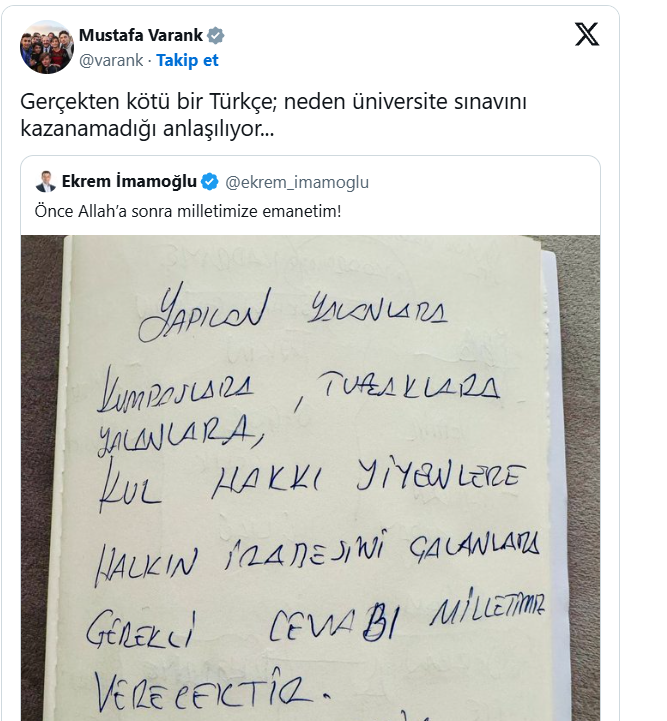 Mustafa Varank
@varank · Takip et
Gerçekten kötü bir Türkçe; neden üniversite sınavını
kazanamadığı anlaşılıyor...
Ekrem İmamoğlu @ekrem_imamoglu
Önce Allah’a sonra milletimize emanetim!
YAPILAN YALANLARA
KUMPASLARA , TUZAKLARA
YALANLARA,
KUL HAKKI YİYENLERE
HALKIN İRADESİNİ ÇALANLARA
GEREKLİ CEVABI MİLLETİMİZ
VERECEKTİR.